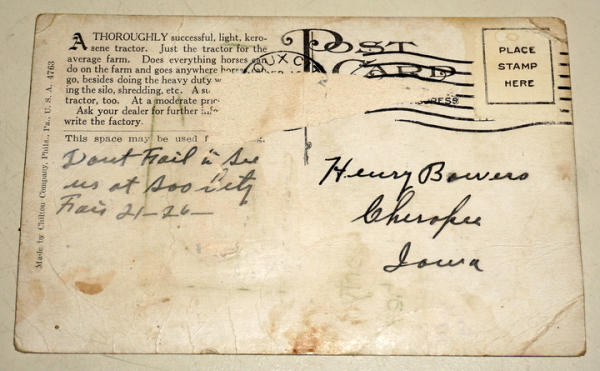 A THOROUGHLY successful, light, kero-
sene tractor. Just the tractor for the
average farm. Does everything horses can
do on the farm and goes anywhere horses
go, besides doing the heavy duty
ing the silo, shredding, etc. A
tractor, too. At a moderate
Ask your dealer for further
write the factory.
This space may be used
Dont Fail to See
us at Soo City
Fair 21-26-
Made by Chilton Company, Phila., Pa., U. S. A. 4763
OUX C
POST
CARD
PLACE
STAMP
HERE
Henry Bowers
Cherokee
Iowa